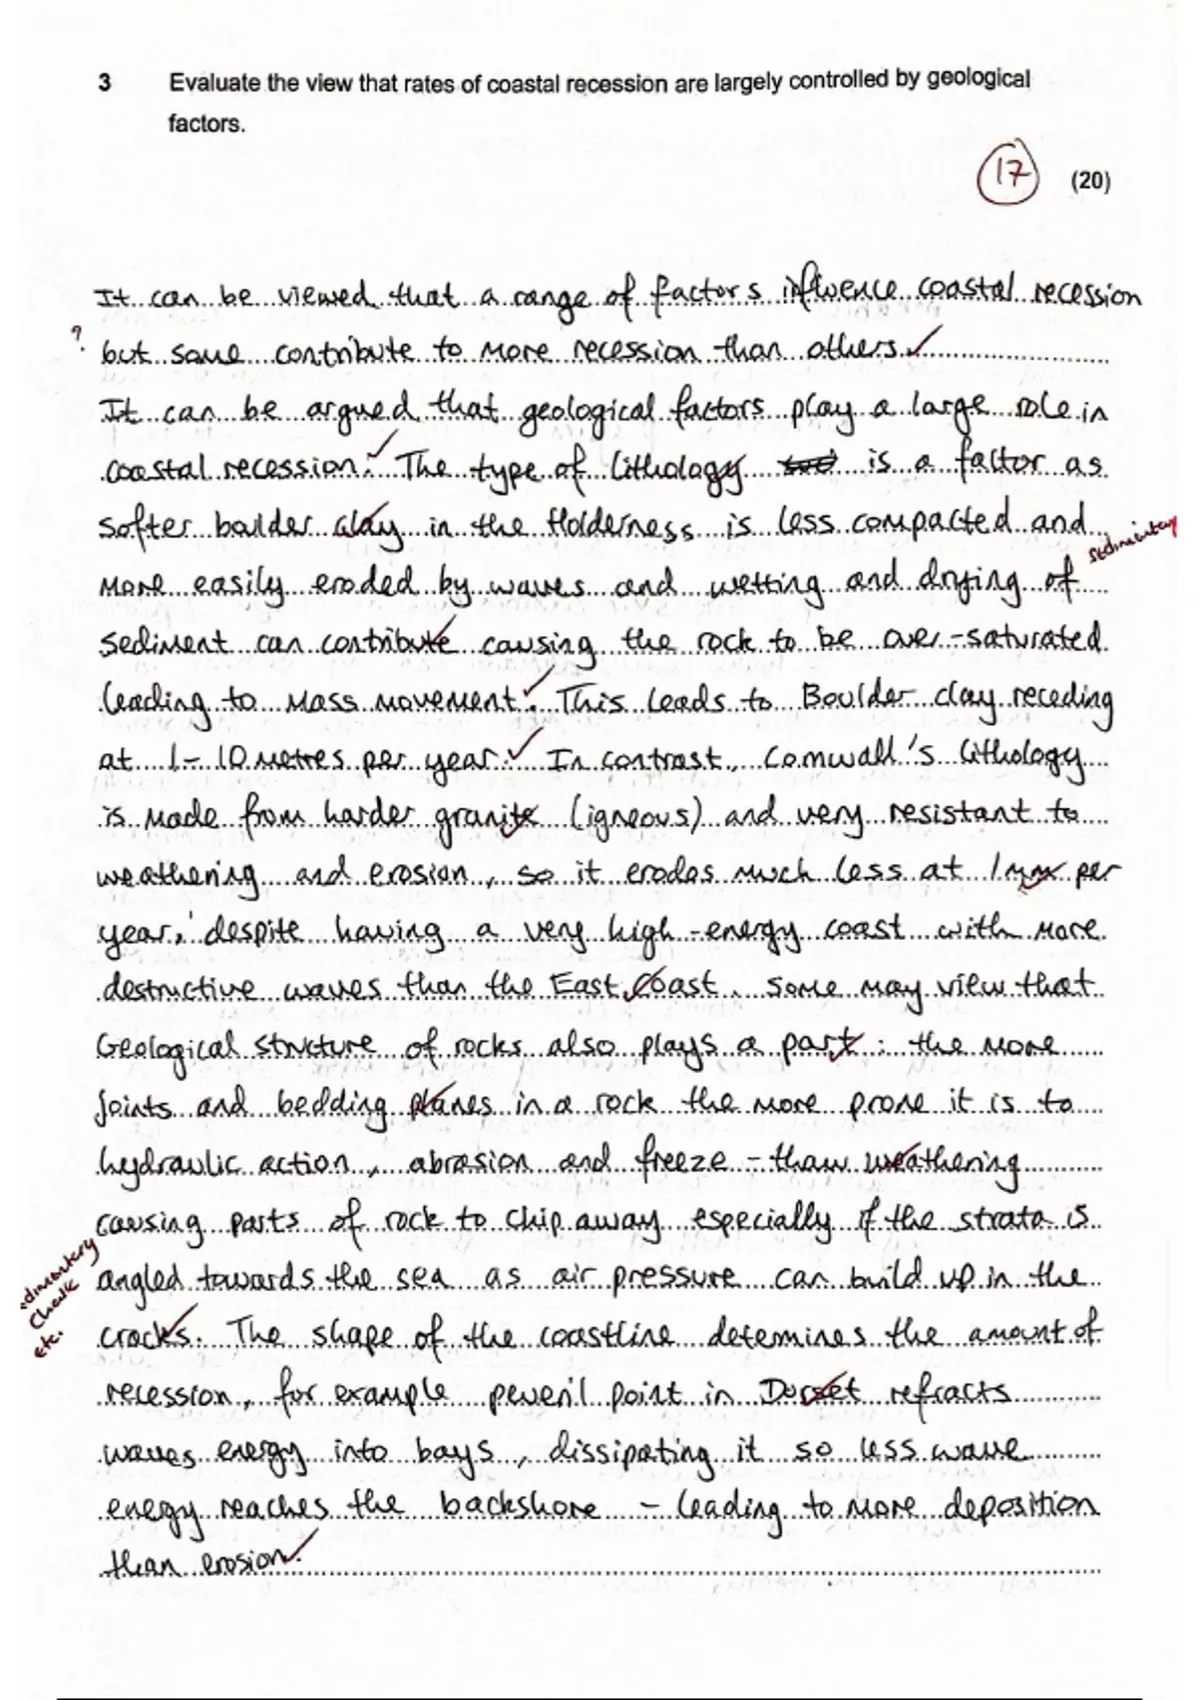 3 Evaluate the view that rates of coastal recession are largely controlled by geological
factors.
17 (20)
It can be viewed that a range of factors influence coastal recession
? but some contribute to more recession than others.
It can be argued that geological factors play a large role in
coastal recession. The type of lithology is a factor as
softer boulder clay in the Holderness is less compacted and
sedimentary
more easily eroded by waves and wetting and drying of
sediment can contribute causing the rock to be over-saturated
leading to mass movement. This leads to Boulder clay receding
at 1-10 metres per year. In contrast, Cornwall's lithology
is made from harder granite (igneous) and very resistant to
weathering and erosion, so it erodes much less at 1mm per
year, despite having a very high-energy coast with more
destructive waves than the East Coast. Some may view that
Geological structure of rocks also plays a part: the more
joints and bedding planes in a rock the more prone it is to
hydraulic action, abrasion and freeze-thaw weathering
causing parts of rock to chip away especially if the strata is
sedimentary
chalk
etc.
angled towards the sea as air pressure can build up in the
cracks. The shape of the coastline determines the amount of
recession, for example peveril point in Dorset refracts
waves energy into bays, dissipating it so less wave
energy reaches the backshore - leading to more deposition
than erosion.